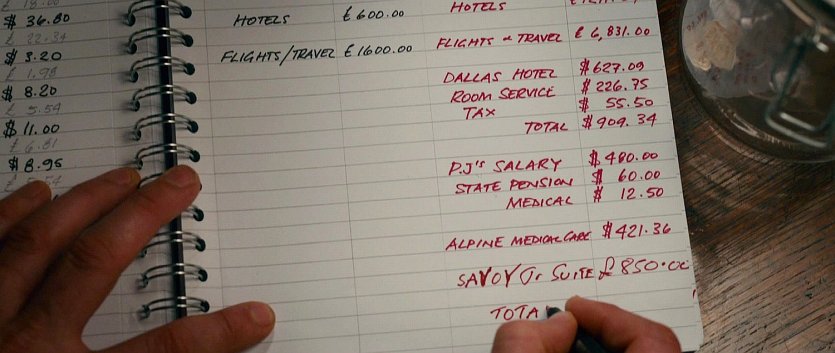 $ 36.80
£ 22.34
$ 3.20
£ 1.98
$ 8.20
£ 5.54
$ 11.00
£ 6.81
$ 8.95
HOTELS £ 600.00
FLIGHTS/TRAVEL £ 1600.00
HOTELS
FLIGHTS & TRAVEL £ 6,831.00
DALLAS HOTEL $ 627.09
ROOM SERVICE $ 226.75
TAX $ 55.50
TOTAL $ 909.34
P.J'S SALARY $ 480.00
STATE PENSION $ 60.00
MEDICAL $ 12.50
ALPINE MEDICAL CARE $ 421.36
SAVOY Jr SUITE £ 850.00
TOTA